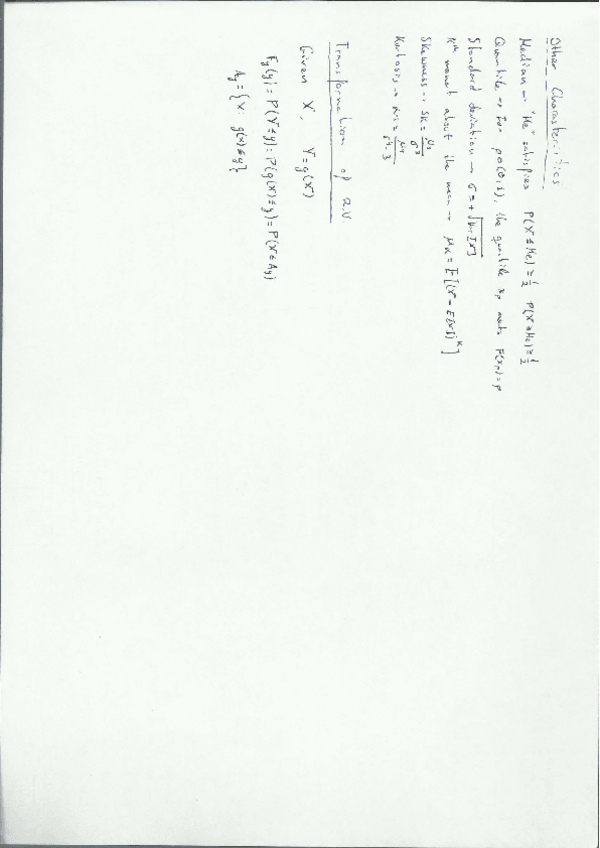 Other Characteristics
Median → "Me" satisfies P(X ≤ Me) ≥ 1/2 P(X ≥ Me) ≥ 1/2
Quantile → For p∈(0,1), the quantile xp meets F(xp)=p
Standard deviation → σ = + √Var[X]
Kth moment about the mean → μk = E[(X - E[X])^k]
Skewness → Sk = μ3/σ^3
Kurtosis → = μ4/σ^4 - 3
Transformation of R.V.
Given X, Y=g(X)
Fy(y) = P(Y≤y) = P(g(X)≤y) = P(X∈Ay)
Ay = {x: g(x)≤y}